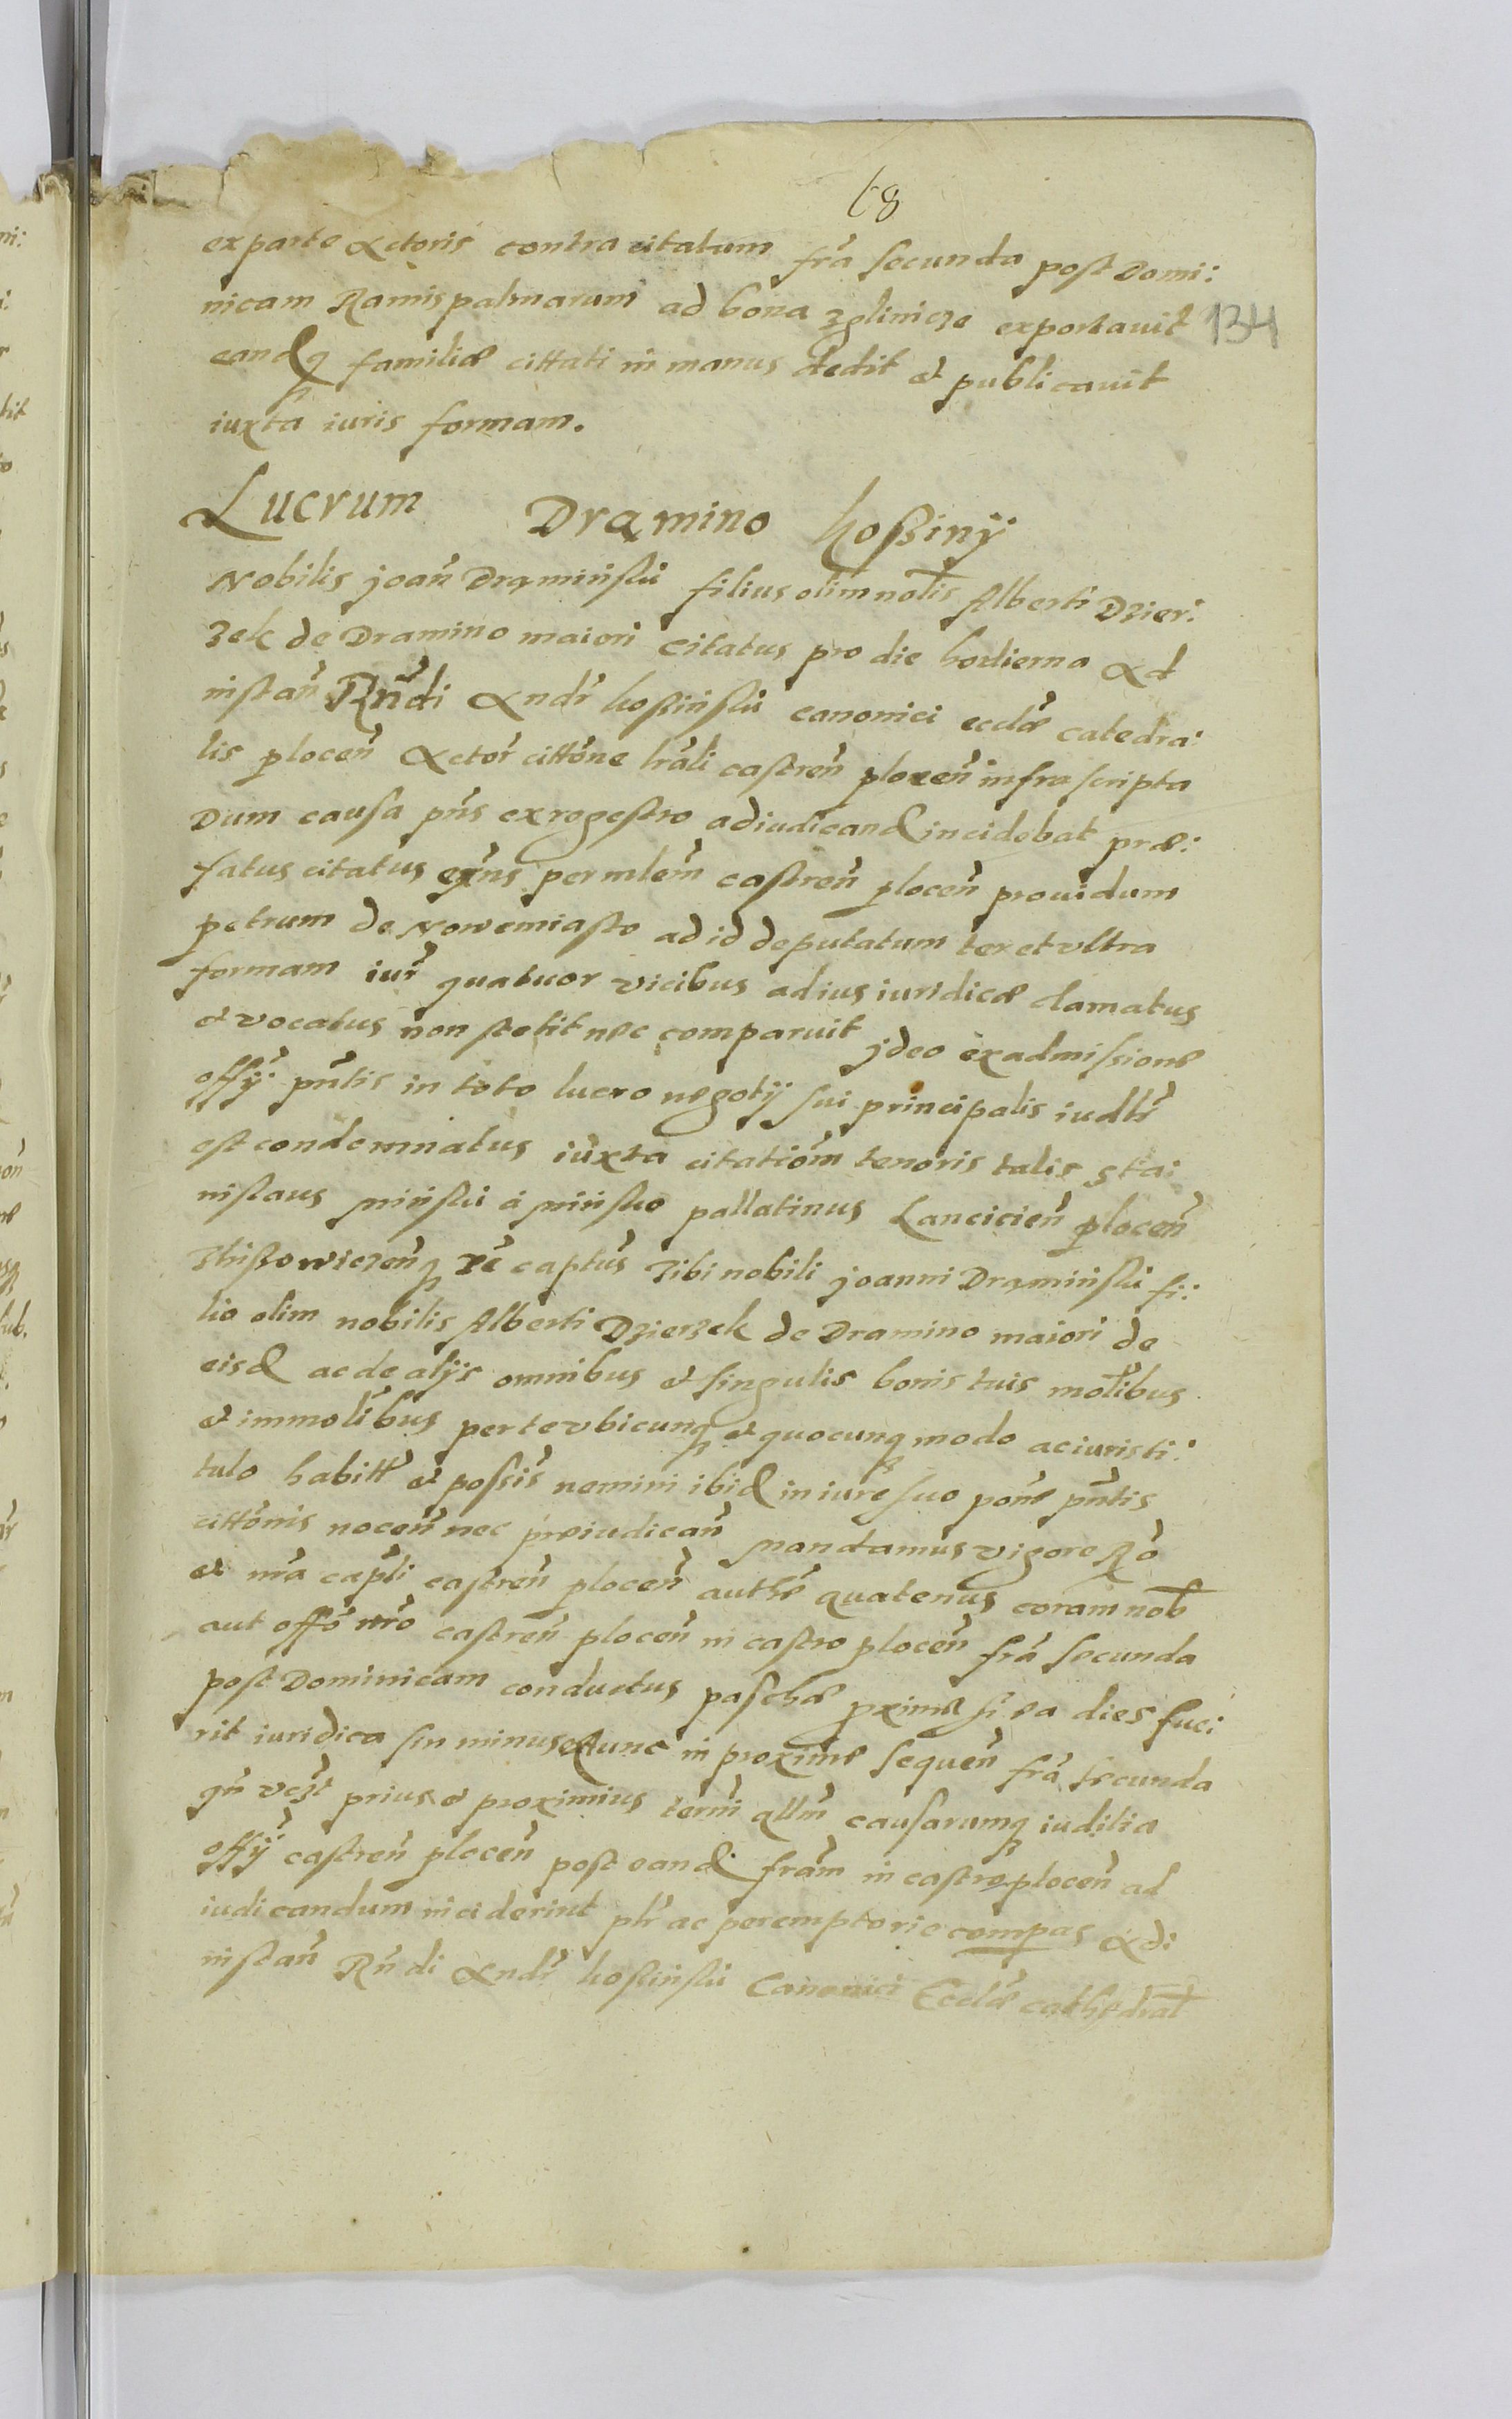 68
ex parte Actoris contra citatum fra secunda post Domi:
nicam Ramispalmarum ad bona zglinicze exportavit
134
eandq familiæ cittati in manus dedit et publicavit
iuxta iuris formam.
Lucrum Dramino kossiny
Nobilis joan Dramiński filius olim nolis Alberti Dzier:
zek de Dramino maiori citatus pro die hodierna Ad
instan Rndi Andr kossiński canonici eccłæ catedra:
lis plocen Actor cittone lrali castren plocen infra scripta
Dum causa pns ex regestro adiudicand incidebat præ:
fatus citatus per mlem castren plocen providum
petrum de Nowemiasto ad id deputatum ter et ultra
formam iur quatuor vicibus ad ius iuridicæ clamatus
et vocatus non stetit nec comparuit jdeo ex admissione
offy pntis in toto lucro negotij sui principalis iudlr
est condemnatus iuxta citatiom tenoris talis Sta:
nislaus Miński a Minsko pallatinus Lancicien plocen
captus Tibi nobili joanni Dramiński fi:
lio olim nobilis Alberti Dzierzek de Dramino maiori de
eisd ac de alijs omnibus et singulis bonis tuis molibus
et immolibus per te ubicunq et quocunq modo ac iuris ti:
tulo habitt et possis nemini ibid in iure suo pone pntis
cittonis nocen nec preiudican Mandamus vigore Ro
et nra capli castren plocen authe quatenus coram nob
aut offo nro castren plocen in castro plocen fra secunda
post Dominicam conductus paschæ pxime si ea dies fue:
rit iuridica sin minus extunc in proxime sequen fra secunda
qn vczt prius et proximius termi qllm causarumq iudilia
offy castren plocen post eand fram in castro plocen ad
iudicandum inciderint plr ac peremptorie compas Ad
instan Rndi Andr kossiński Canonici Ecclæ cathedral